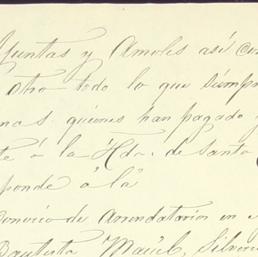 Yuntas y Amoles así con
otro todo lo que siempr
nos. quienes han pagado
te á la Hda. de Santa
ponde á la
Convenio de Arrendatarios en
Bautista Maciel, Silverio